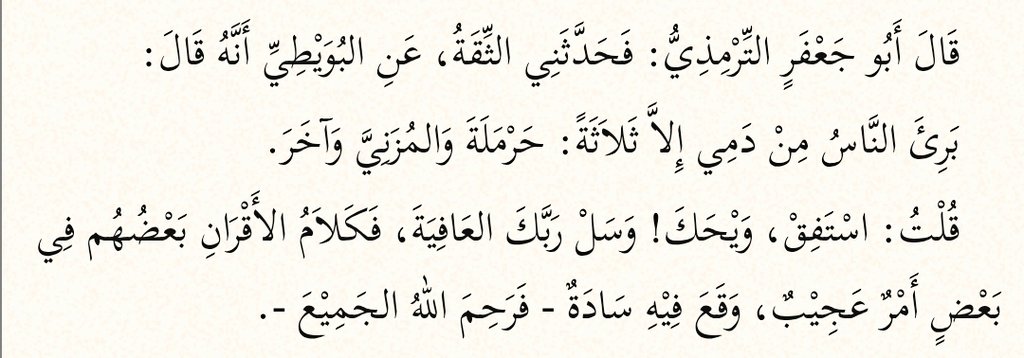 قَالَ أَبُو جَعْفَرٍ التِّرْمِذِيُّ: فَحَدَّثَنِي الثِّقَةُ، عَنِ البُوَيْطِيِّ أَنَّهُ قَالَ:
بَرِئَ النَّاسُ مِنْ دَمِي إِلاَّ ثَلاَثَةً: حَرْمَلَةَ وَالمُزَنِيَّ وَآخَرَ.
قُلْتُ: اسْتَفِقْ، وَيْحَكَ! وَسَلْ رَبَّكَ العَافِيَةَ، فَكَلاَمُ الأَقْرَانِ بَعْضُهُم فِي
بَعْضٍ أَمْرٌ عَجِيْبٌ، وَقَعَ فِيْهِ سَادَةٌ - فَرَحِمَ اللهُ الجَمِيْعَ -.